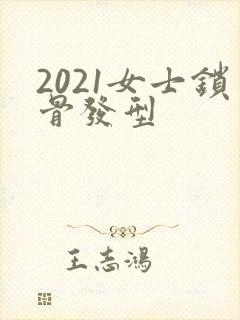 2021女士鎖
骨發型
王志鴻